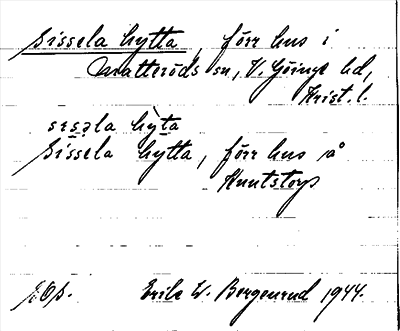 Sissela hytta, förr hus i
Matteröds sn, V. Göinge hd,
Krist. l.
sɪsəla hỳta
Sissela hytta, förr hus på
Kuntstorp
Erik W. Bergenrud 1944.